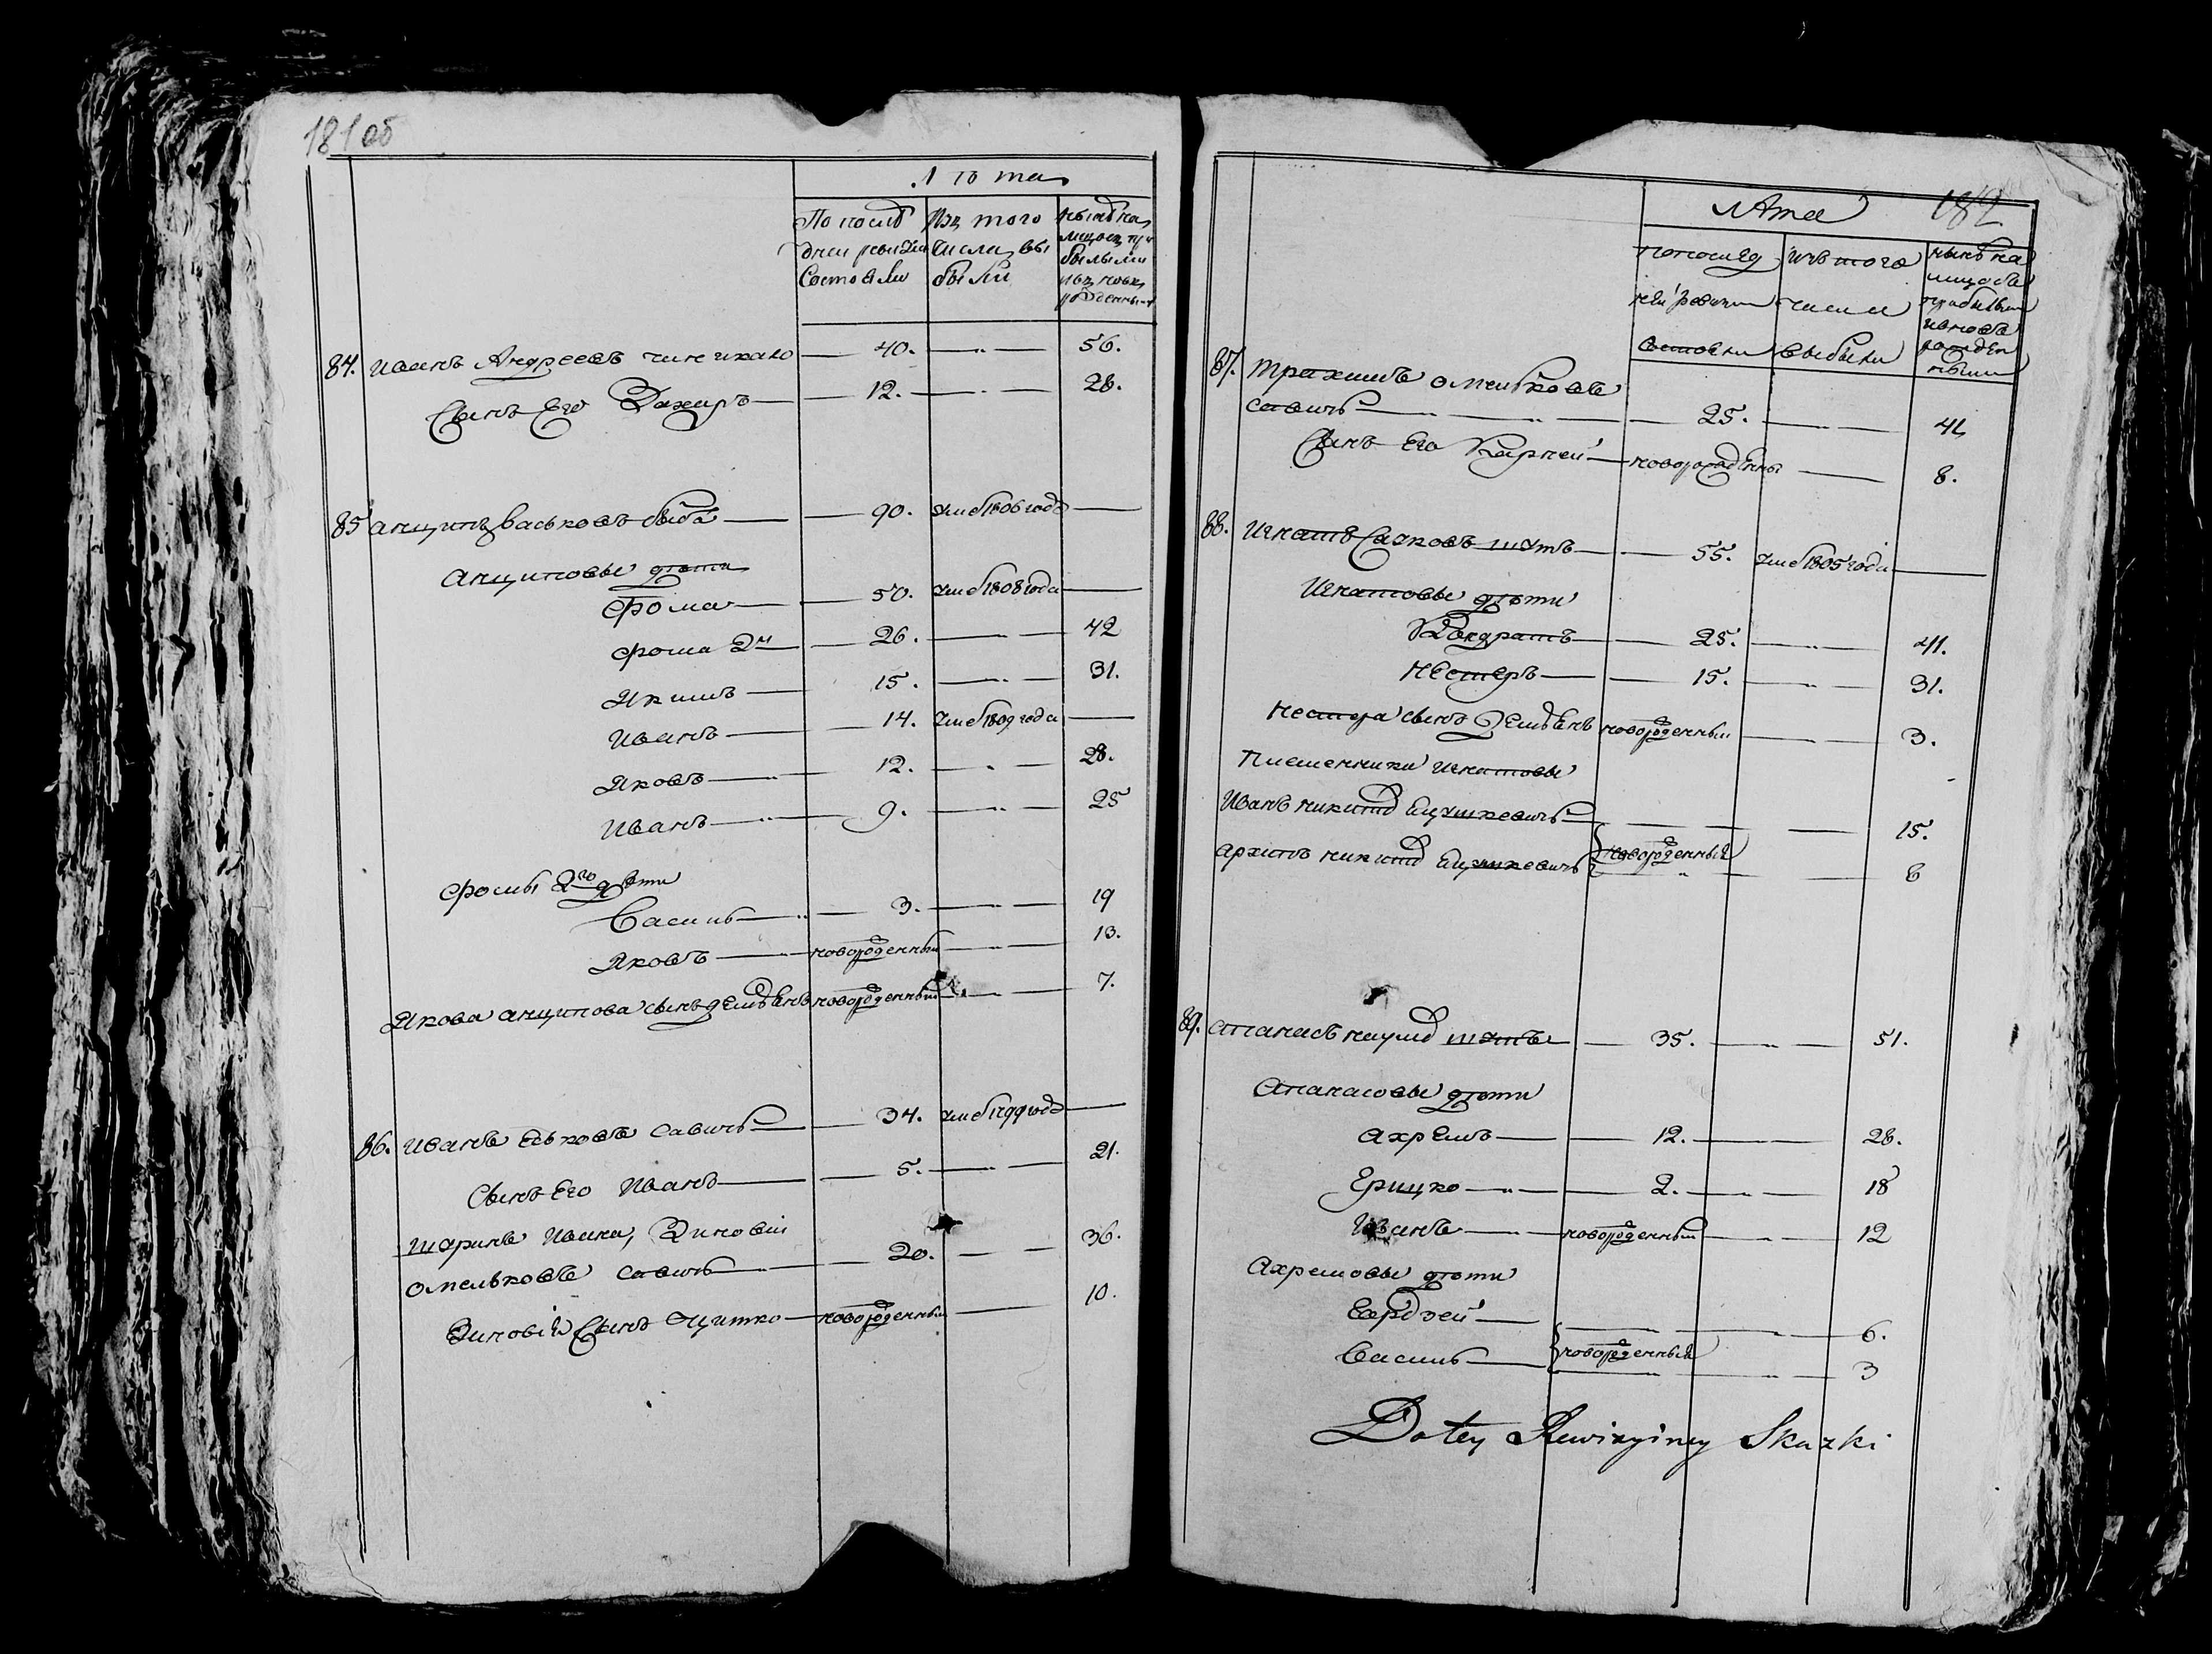 181 об
Лѣта
По послѣ
дней ревизіи
состояли
Изъ того
числа вы
были
Нынѣ на
лицо съ при
былыми
и въ новь
рожденными
84. Иванъ Андреевъ — 40. — „ — 56.
Сынъ Его Захаръ — 12. — „ — 28.
85 Анципъ Васьковъ — 90. умеъ 1806 года —
Анциповы дѣти
Фома — 50. умеъ 1808 года —
Фома 2й — 26. — „ — 42
Якимъ — 15. — „ — 31.
Иванъ — 14. умеъ 1809 года —
Яковъ — „ — 12. — „ — 28.
Иванъ — „ — 9. — „ — 25
Фомы 2го дѣти
Василь — „ — 3. — „ — 19
Яковъ — новорожденный — „ — 13.
Якова Анципова сынъ Демьянъ новорожденный — „ — 7.
86. Иванъ Еськовъ Савичъ — 34. умеъ 1799 года —
Сынъ Его Иванъ — 5. — „ — 21.
Шуринъ Ивана, Зиновій
Омельковъ Савичъ — „ — 20. — — 36.
Зиновій Сынъ Янушко — новорожденный — 10.
182
Лѣта
Попослед
ней ревизіи
состояли
изъ того
числа
выбыли
нынѣ на
лицо съ
прибылыми
и вновь
рожден
ными
87. Трахимъ Омельковъ
Савичъ — „ — 25. — „ — 41
Сынъ Его Карней — новорожденны — 8.
88. Игнатъ Сачковъ — 55. умеъ 1805 года —
Игнатовы дѣти
Кондратъ — 25. — „ — 41.
Нестеръ — 15. — „ — 31.
Нестера сынъ Демьянъ новорожденный — „ — 3.
Племенники Игнатовы
Иванъ Никит — „ — 15.
Архипъ Никит новорожденный — „ — 6
89. Апанасъ Наум — 35. — „ — 51.
Апанасовы дѣти
Ахремъ — 12. — „ — 28.
Грицко — „ — 2. — „ — 18
Иванъ — „ — новорожденный — „ — 12
Ахремовы дѣти
— „ — 6.
Василь — новорожденный — „ — 3
Do tey Rewizyiney Skazki